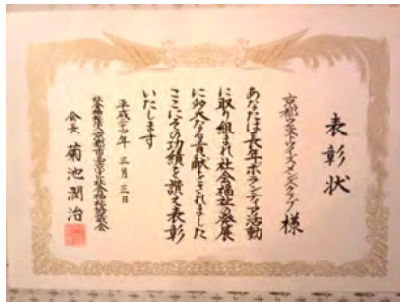 表彰状
京都ウエストワイズメンズクラブ 様
あなたは長年ボランティア活動
に取り組まれ社会福祉の発展
に多大な貢献をされました
ここにその功績を讃え表彰
いたします
平成二十七年 三月三日
会長 菊池潤治